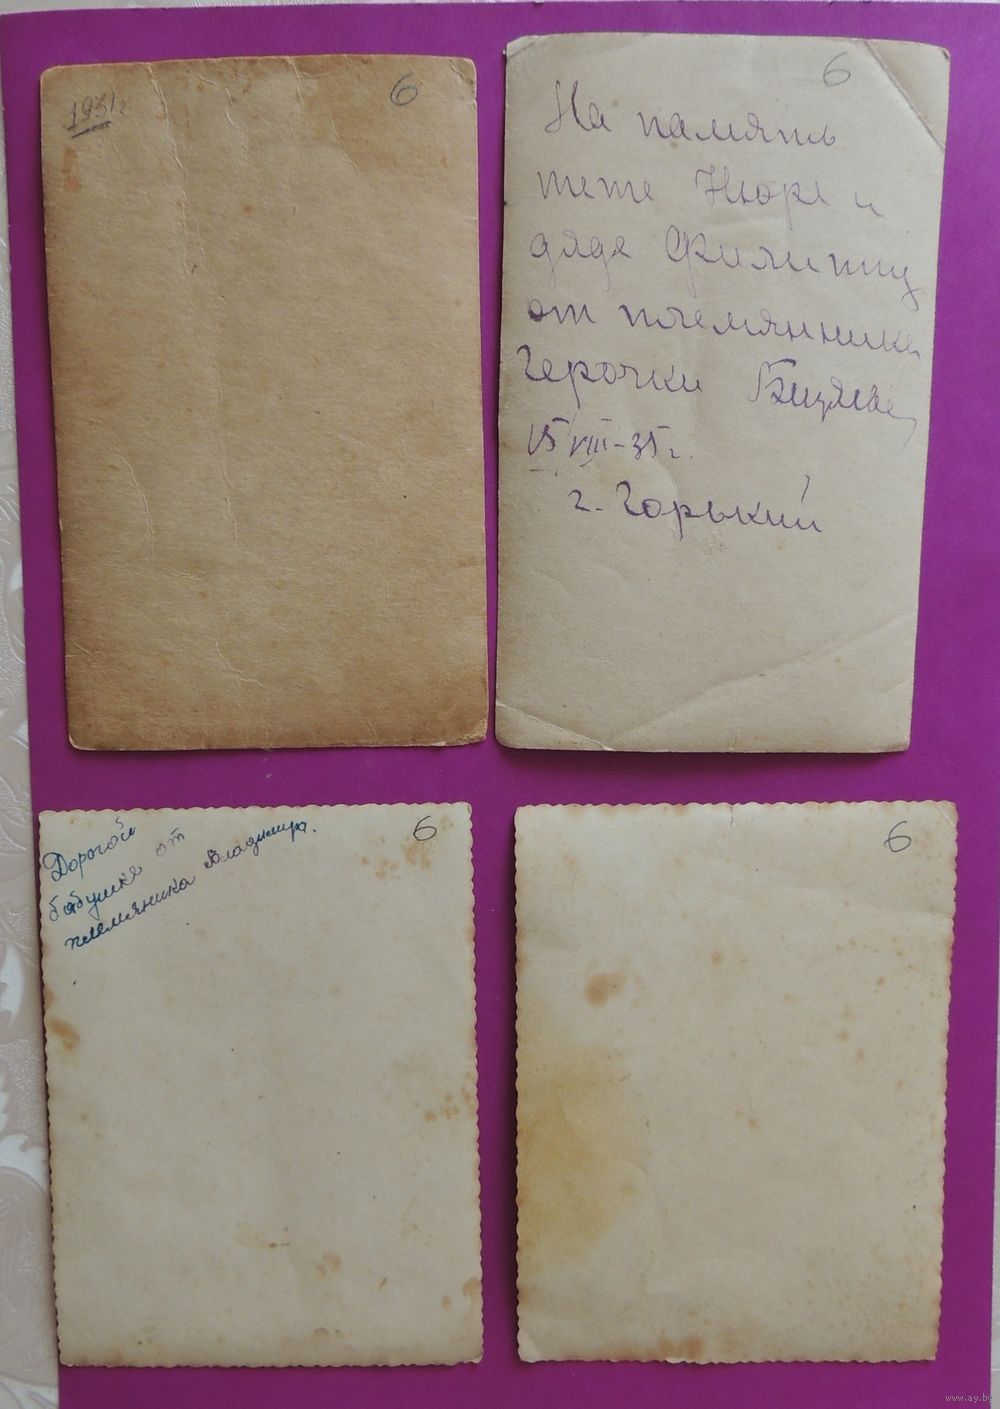 1931г
6
6
На память
тете Нюре и
дяде Филиппу
от племянника
Герочки
15 VIII-35г.
г. Горький
Дорогой
бабушке от
племяника Владимира.
6
6
www.ay.by